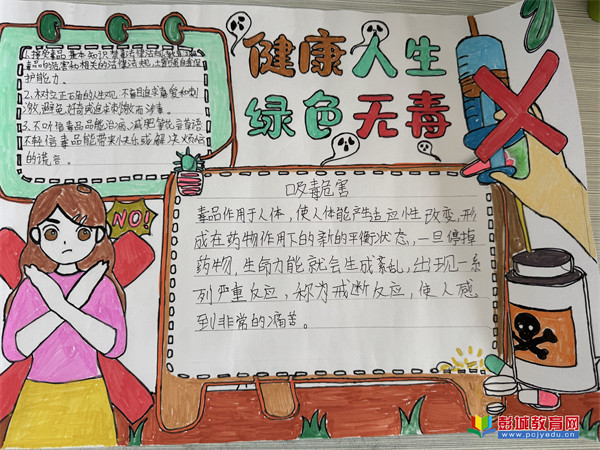 健康人生
绿色无毒
1.接受毒品基本知识禁毒法律法规教育，了解
毒品的危害和相关的法律法规，增强自我保
护能力。
2.树立正确的人生观，不盲目追求享受和刺
激，避免好奇或追求刺激而涉毒。
3.不听信毒品能治病、减肥等花言巧语
不轻信毒品能带来快乐或解决烦恼
的谎言。
NO!
吸毒危害
毒品作用于人体，使人体能产生适应性改变，形
成在药物作用下的新的平衡状态，一旦停掉
药物，生命力能就会生成紊乱，出现一系
列严重反应，称为戒断反应，使人感
到非常的痛苦。
彭城教育网
www.pcjyedu.cn